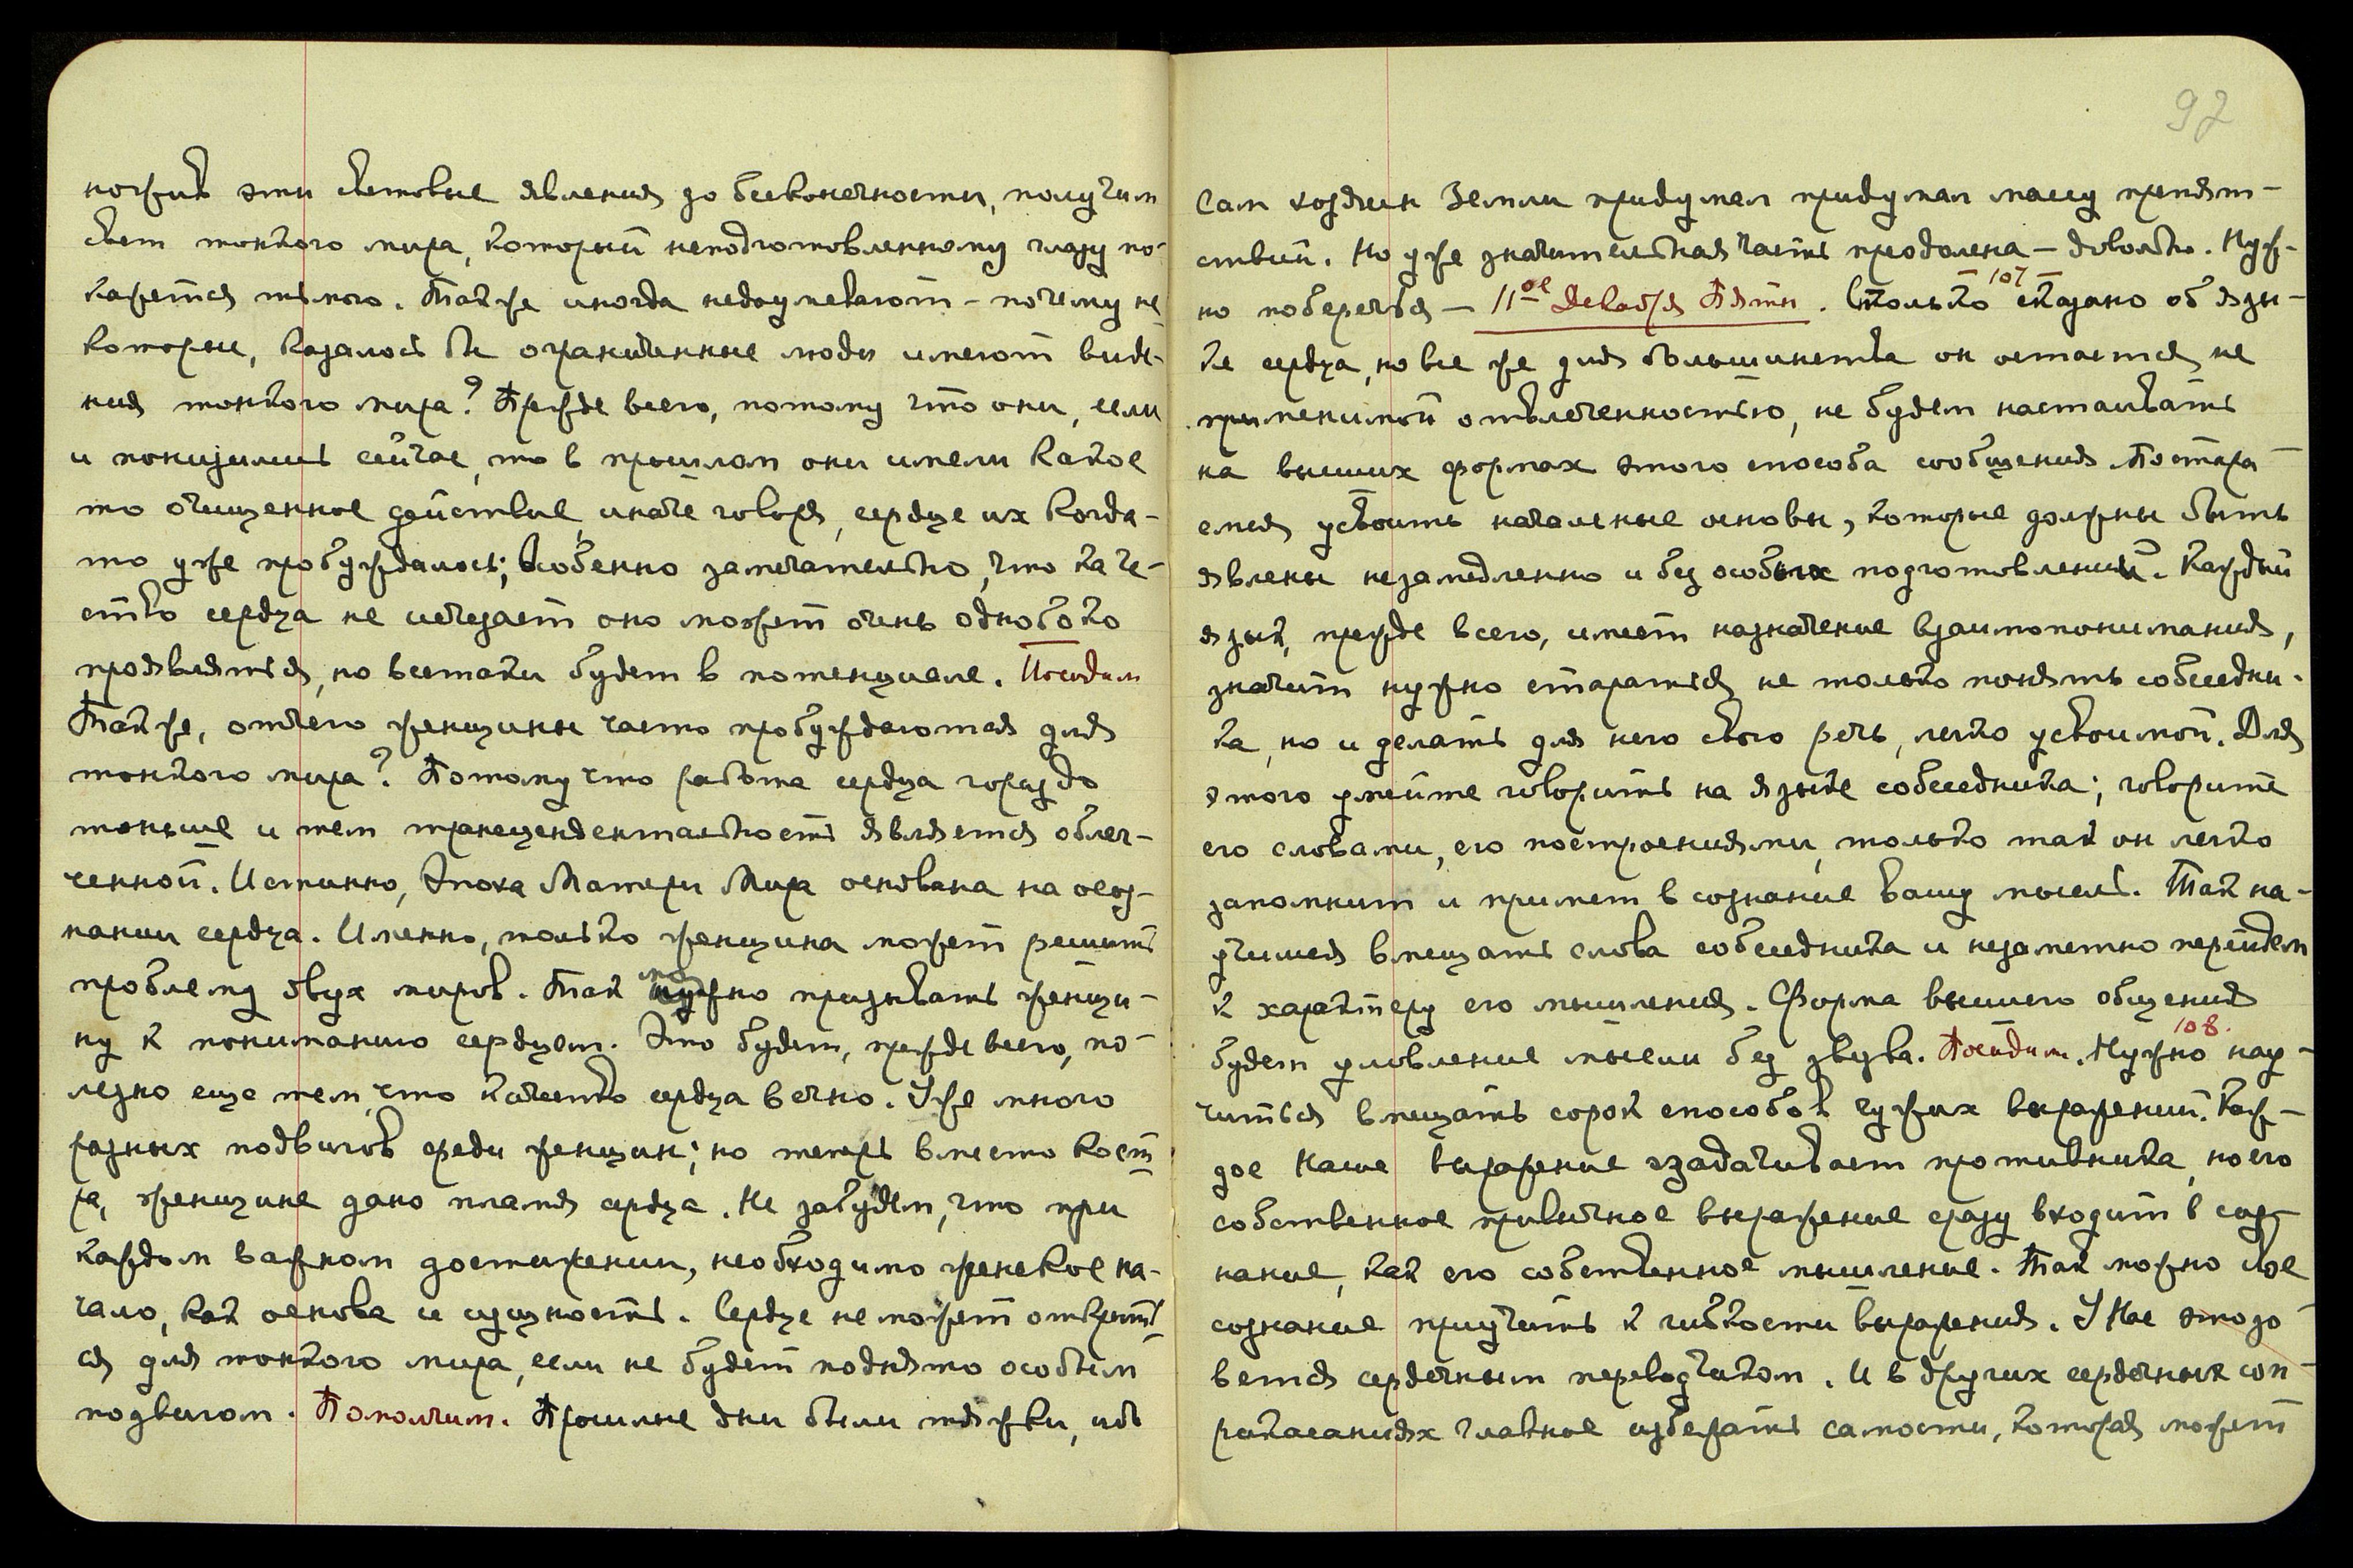 ножив эти световые явления до бесконечности, получим
свет тонкого мира, который неподготовленному глазу по-
кажется тьмою. Также иногда недоумевают – почему не
которые, казалось бы ограниченные люди имеют виде-
ния тонкого мира? Прежде всего, потому что они, если
и понизились сейчас, то в прошлом они имели какое
то очищенное действие, иначе говоря, сердце их когда-
то уже пробуждалось; Особенно замечательно, что каче-
ство сердца не исчезает оно может очень однобоко
проявляться, но всетаки будет в потенциале. Посидим
Также, отчего женщины часто пробуждаются для
тонкого мира? Потому что работа сердца гораздо
тоньше и тем трансцендентальность является облег-
ченной. Истинно, Эпоха Матери Мира основана на осоз-
нании сердца. Именно, только женщина может решить
проблему двух миров. Так можно призывать женщи-
ну к пониманию сердцем. Это будет, прежде всего, по-
лезно еще тем, что качество сердца вечно. Уже много
разных подвигов среди женщин; но теперь вместо кост
ра, женщине дано пламя сердца. Не забудем, что при
каждом важном достижении, необходимо женское на-
чало, как основа и сущность. Сердце не может открыть
ся для тонкого мира, если не будет поднято особым
подвигом. Помолчим. Прошлые дни были тяжки, ибо
97
Сам хозяин Земли придумал придумал массу препят-
ствий. Но уже значительная часть преодолена – довольно. Нуж-
но поберечься – 11ое Декабря Пятн. 107 Столько сказано об язы-
ке сердца, но все же для большинства он остается не
применимой отвлеченностью, не будем настаивать
на высших формах этого способа сообщения. Постара
емся усвоить начальные основы, которые должны быть
явлены незамедленно и без особых подготовлений. Каждый
язык, прежде всего, имеет назначение взаимопонимания,
значит нужно стараться не только понять собеседни-
ка, но и делать для него свою речь, легко усвоимой. Для
этого умейте говорить на языке собеседника; говорите
его словами, его построениями, только так он легко
запомнит и примет в сознание вашу мысль. Так на-
учимся вмещать слова собеседника и незаметно перейдем
к характеру его мышления. Форма высшего общения
будет уловление мысли без звука. Посидим. 108. Нужно нау-
читься вмещать сорок способов чужих выражений. Каж-
дое Наше выражение озадачивает противника, но его
собственное привычное выражение сразу входит в соз-
нание, как его собственное мышление. Так можно свое
сознание приучить к гибкости выражения. У Нас это зо
вется сердечным переводчиком. И в других сердечных соп-
рикасаниях главное избежать самости, которая может